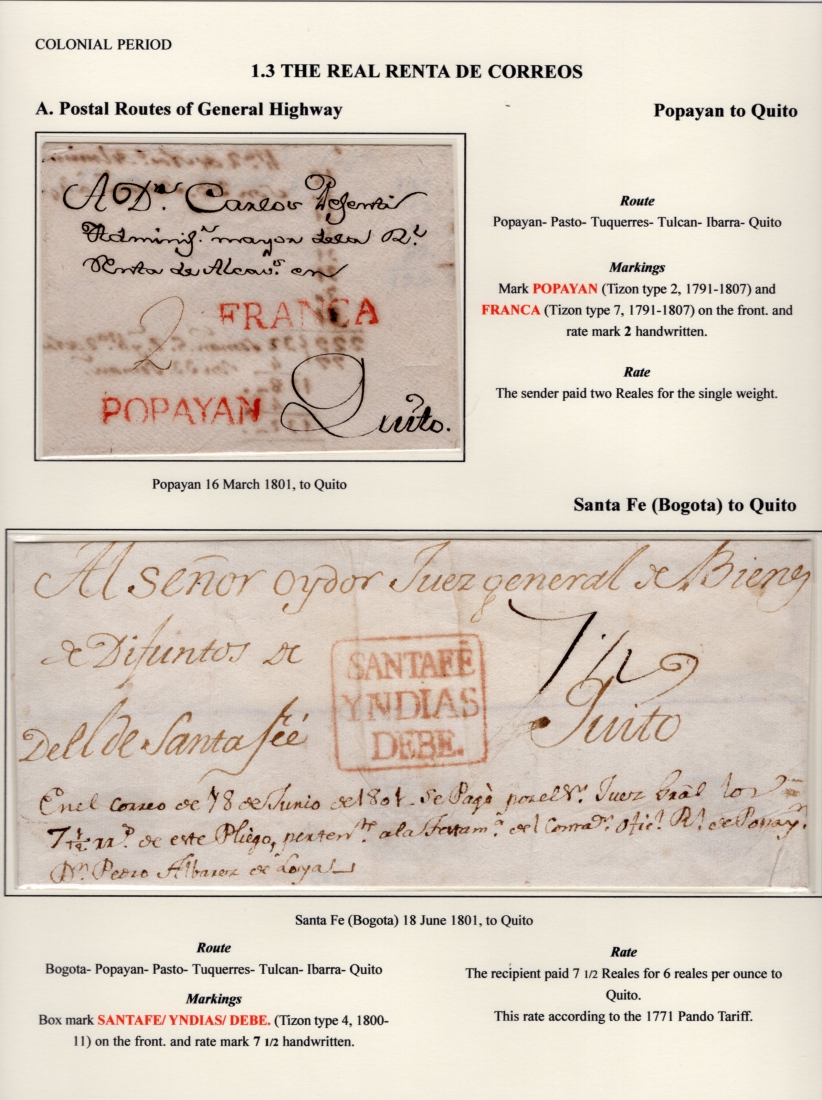 COLONIAL PERIOD
1.3 THE REAL RENTA DE CORREOS
A. Postal Routes of General Highway
Popayan to Quito
A Dn. Carlos Presenti
Adminisr. mayor dela Rl.
Renta de Alcavs. en
FRANCA
2
POPAYAN
Quito.
Route
Popayan- Pasto- Tuquerres- Tulcan- Ibarra- Quito
Markings
Mark POPAYAN (Tizon type 2, 1791-1807) and
FRANCA (Tizon type 7, 1791-1807) on the front. and
rate mark 2 handwritten.
Rate
The sender paid two Reales for the single weight.
Popayan 16 March 1801, to Quito
Santa Fe (Bogota) to Quito
Al Señor oydor Juez general de Bienes
de Difuntos de
7 1/2
Quito
SANTAFÉ
YNDIAS
DEBE.
Dell de Santa feé
En el correo de 18 de Junio de 1801. se Pagó por el Sr. Juez Gral los
7 1/2 rrs. de este Pliego, pertente. a la Testama. del Contadr. Oficl. Rl. de Popayn.
Dn. Pedro Albarez de Loyal
Santa Fe (Bogota) 18 June 1801, to Quito
Route
Bogota- Popayan- Pasto- Tuquerres- Tulcan- Ibarra- Quito
Markings
Box mark SANTAFE/ YNDIAS/ DEBE. (Tizon type 4, 1800-
11) on the front. and rate mark 7 1/2 handwritten.
Rate
The recipient paid 7 1/2 Reales for 6 reales per ounce to
Quito.
This rate according to the 1771 Pando Tariff.